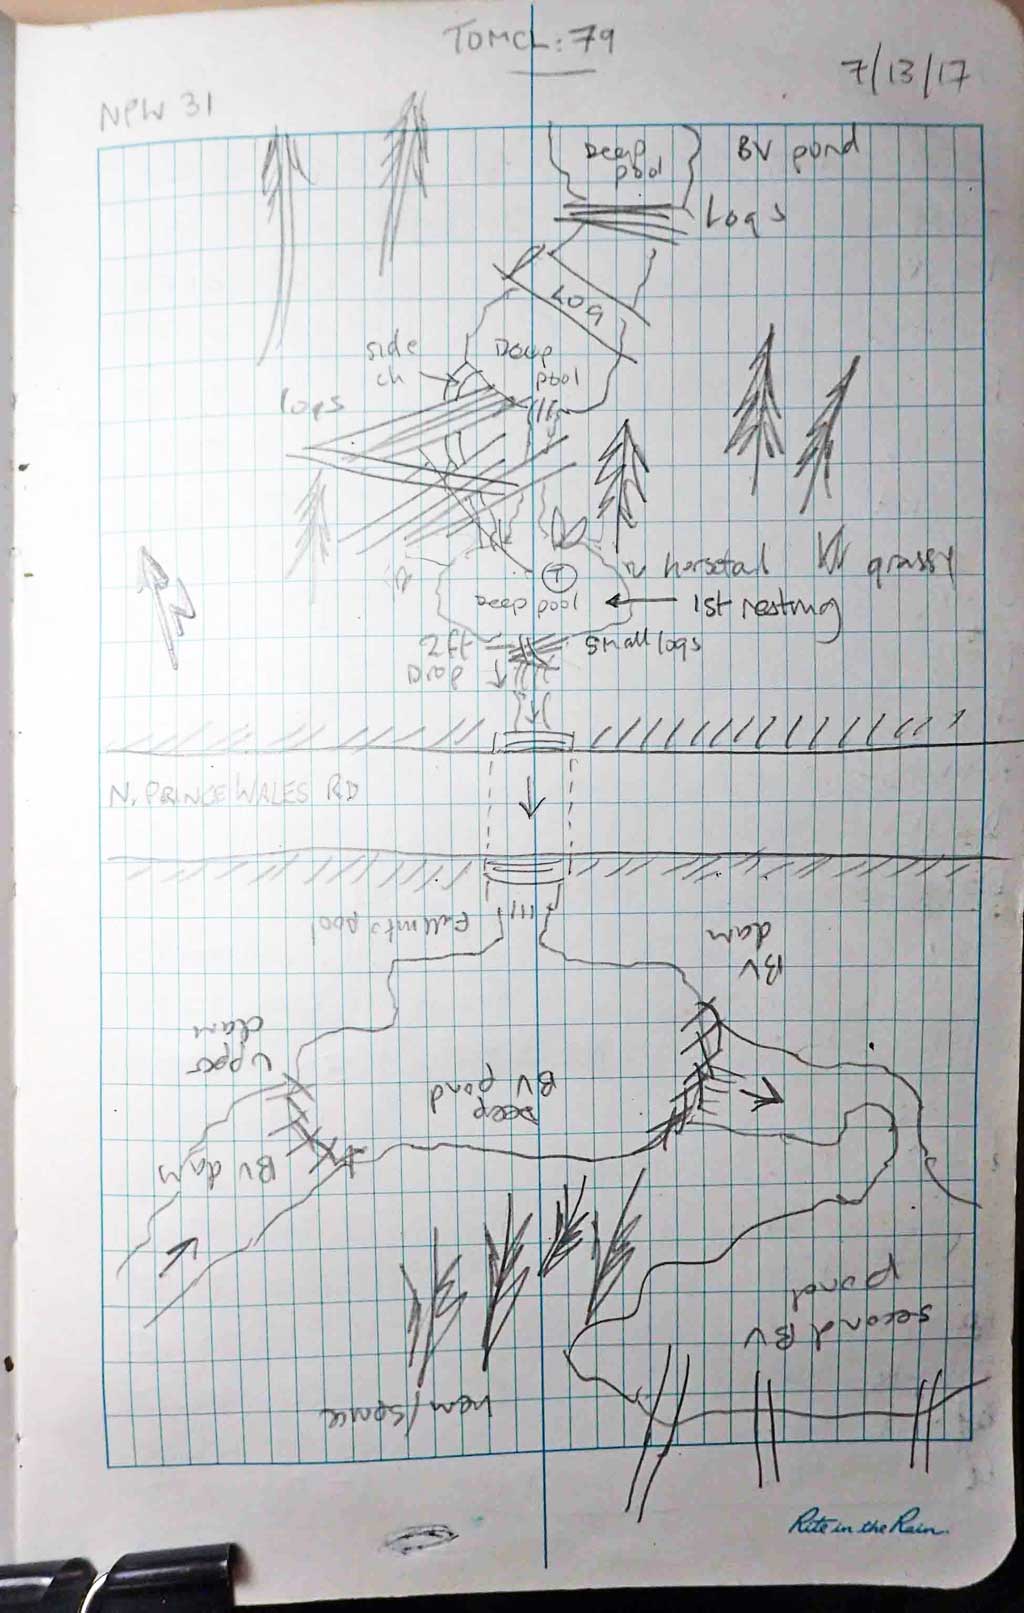 TOMCL: 79
7/13/17
NPW 31
Deep
pool
BV pond
Logs
LOG
side
ch
Deep
pool
logs
horsetail
grassy
pool deep
1st resting
2 ft
small logs
N. PRINCE WALES RD
Fall into pool
BV
dam
upper
dam
Deep
BV
pond
BV dam
second BV
pond
hem/spruce
Rite in the Rain